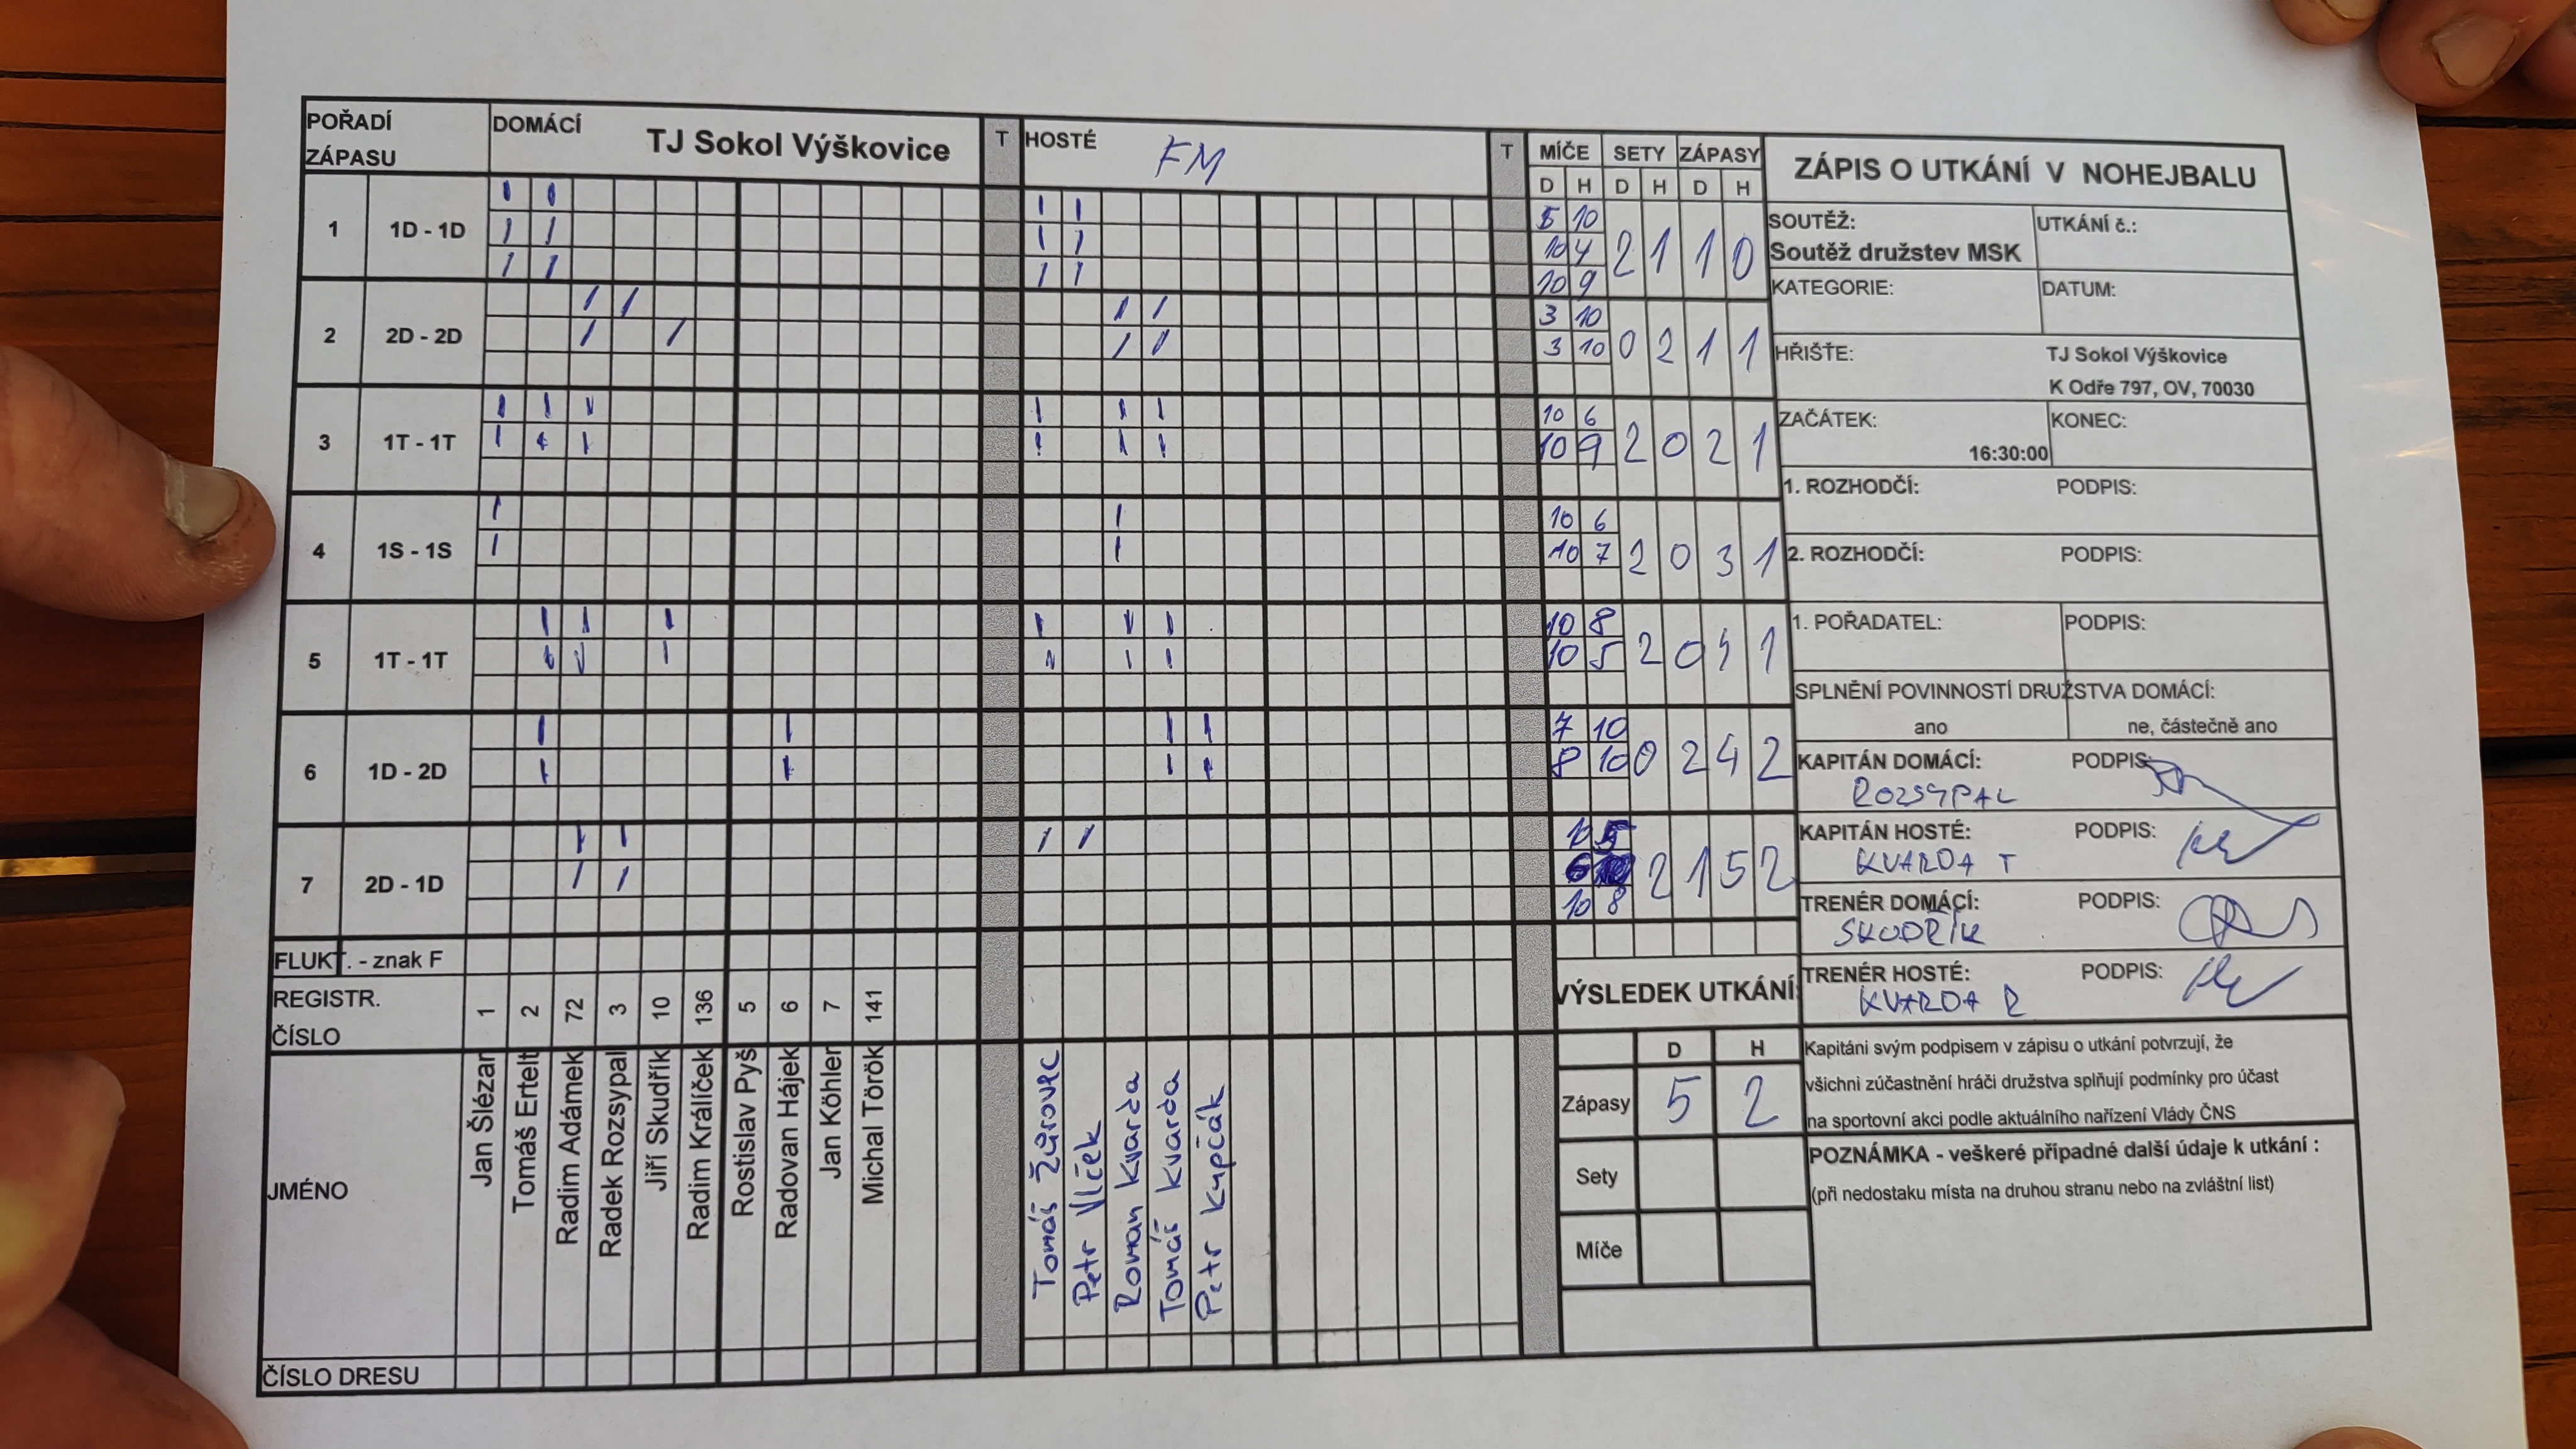 POŘADÍ
ZÁPASU
DOMÁCÍ TJ Sokol Výškovice T HOSTÉ FM T
MÍČE SETY ZÁPASY
D H D H D H
1 1D - 1D
5 10
10 4 2 1 1 0
10 9
2 2D - 2D
3 10
3 10 0 2 1 1
3 1T - 1T
10 6
10 9 2 0 2 1
4 1S - 1S
10 6
10 7 2 0 3 1
5 1T - 1T
10 8
10 5 2 0 4 1
6 1D - 2D
7 10
8 10 0 2 4 2
7 2D - 1D
10 5
2 1 5 2
10 8
FLUKT. - znak F
REGISTR.
ČÍSLO
1 2 72 3 10 136 5 6 7 141
JMÉNO
Jan Šlézar
Tomáš Ertelt
Radim Adámek
Radek Rozsypal
Jiří Skudřík
Radim Králíček
Rostislav Pyš
Radovan Hájek
Jan Köhler
Michal Török
Tomáš Žůrovec
Petr Vlček
Roman Kvarda
Tomáš Kvarda
Petr Kupčák
ČÍSLO DRESU
VÝSLEDEK UTKÁNÍ:
D H
Zápasy 5 2
Sety
Míče
ZÁPIS O UTKÁNÍ V NOHEJBALU
SOUTĚŽ: UTKÁNÍ č.:
Soutěž družstev MSK
KATEGORIE: DATUM:
HŘIŠTE: TJ Sokol Výškovice
K Odře 797, OV, 70030
ZAČÁTEK: KONEC:
16:30:00
1. ROZHODČÍ: PODPIS:
2. ROZHODČÍ: PODPIS:
1. POŘADATEL: PODPIS:
SPLNĚNÍ POVINNOSTÍ DRUŽSTVA DOMÁCÍ:
ano ne, částečně ano
KAPITÁN DOMÁCÍ: PODPIS:
ROZSYPAL
KAPITÁN HOSTÉ: PODPIS:
KVARDA T
TRENÉR DOMÁCÍ: PODPIS:
SKUDŘÍK
TRENÉR HOSTÉ: PODPIS:
KVARDA R
Kapitáni svým podpisem v zápisu o utkání potvrzují, že
všichni zúčastnění hráči družstva splňují podmínky pro účast
na sportovní akci podle aktuálního nařízení Vlády ČNS
POZNÁMKA - veškeré případné další údaje k utkání :
(při nedostaku místa na druhou stranu nebo na zvláštní list)